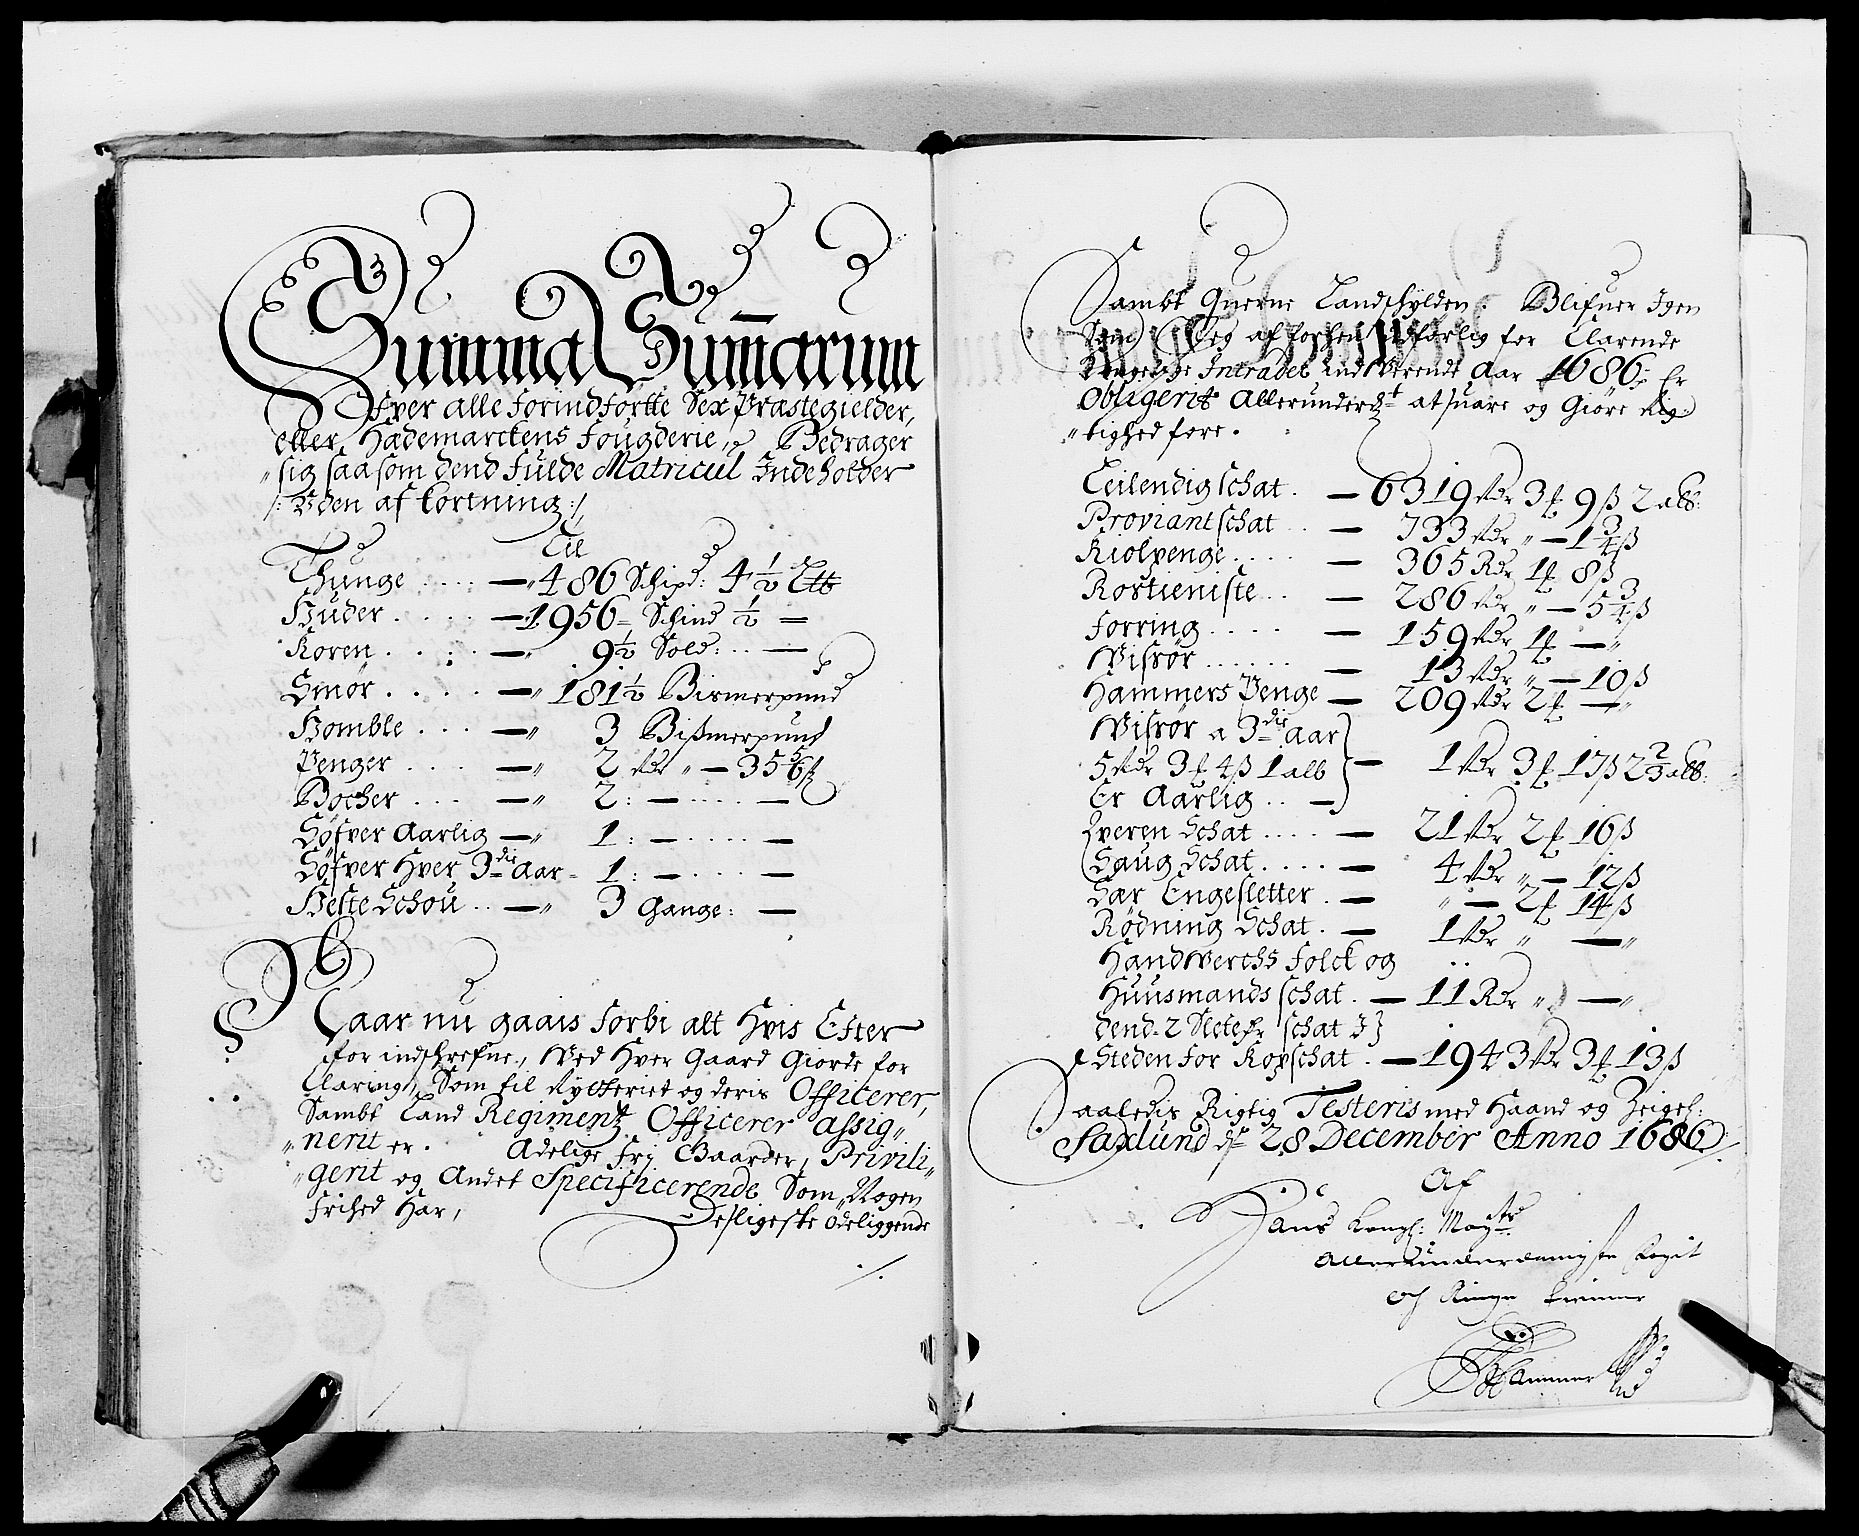 Summa Summarum
Ofver alle forindförtte Sex Præstegielder,
eller Hædemarckens fougderie, Bedrager
sig saa som dend fulde Matricul Indeholder
/: Uden af kortning :/
Till
Thunge .... — 486 Schipd: 4 1/2 Ltb
Huder .... — 1956 = Schind 1/2 —
Koren .... — 9 1/2 Sold: .. —
Smör .... — 181 1/2 Bismerpund
Homble ... — 3 Bißmerpund
Penger .... — 2 Rdr " — 35 5/6 ß
Bocher ... — 2: — .... —
Söfver Aarlig — 1: — .... —
Söfver Hver 3die Aar - 1: — .... —
Heste Schou .. — 3 Gange: —
Naar nu gaais forbi alt Hvis Efter
for indschrefne, Ved Hver Gaard Giorde for
Claring, Som til Rytteriet og deris Officerer,
Sambt Land Regimentz Officerer assig„
„nerit er. Adelige frj Gaarder, Privili„
„gerit og Andet Specificerende Som Nogen
frihed Har,
Desligeste ödeliggende
Sambt Querne Landschylden. Blifuer Igen
Som Jeg forclarende
Intrader indværende Aar 1686, Er
Obligerit Allerunderdst at suare og Giöre Rig„
„tighed fore.
Leilending schat . — 6319 Rdr 3 ₰ 9 ß 2 alb:
Proviant schat .. — 733 Rdr " — 1 3/4 ß
Kiolpenge .... — 365 Rdr 1 ₰ 8 ß
Rostieniste .. — 286 Rdr " — 5 3/4 ß
Forring .... — 159 Rdr 1 ₰ — "
Visrör ...... — 13 Rdr " — 10 ß
Hammers Penge — 209 Rdr 2 ₰ — "
Visrör a 3die Aar
5 Rdr 3 ₰ 4 ß 1 alb } — 1 Rdr 3 ₰ 17 ß 2 2/3 alb:
Er Aarlig .. —
Qveren Schat .... — 21 Rdr 2 ₰ 16 ß
Saug Schat .... — 4 Rdr " — 12 ß
Sær Engesletter . — " — 2 ₰ 14 ß
Rødning Schat . — 1 Rdr " — "
Handverchs folck og
Huusmands schat . — 11 Rdr " — "
dend 2 Sletefr schat I }
Steden for Kopschat . — 1943 Rdr 3 ₰ 13 ß
Saaledis Rigtig Testeris med Haand og Zeigel:
Saxlund dn 28 December Anno 1686 /.
Af
Hans Kongl: Mayts
Allerunderdanigste fogit
och Ringe tienner